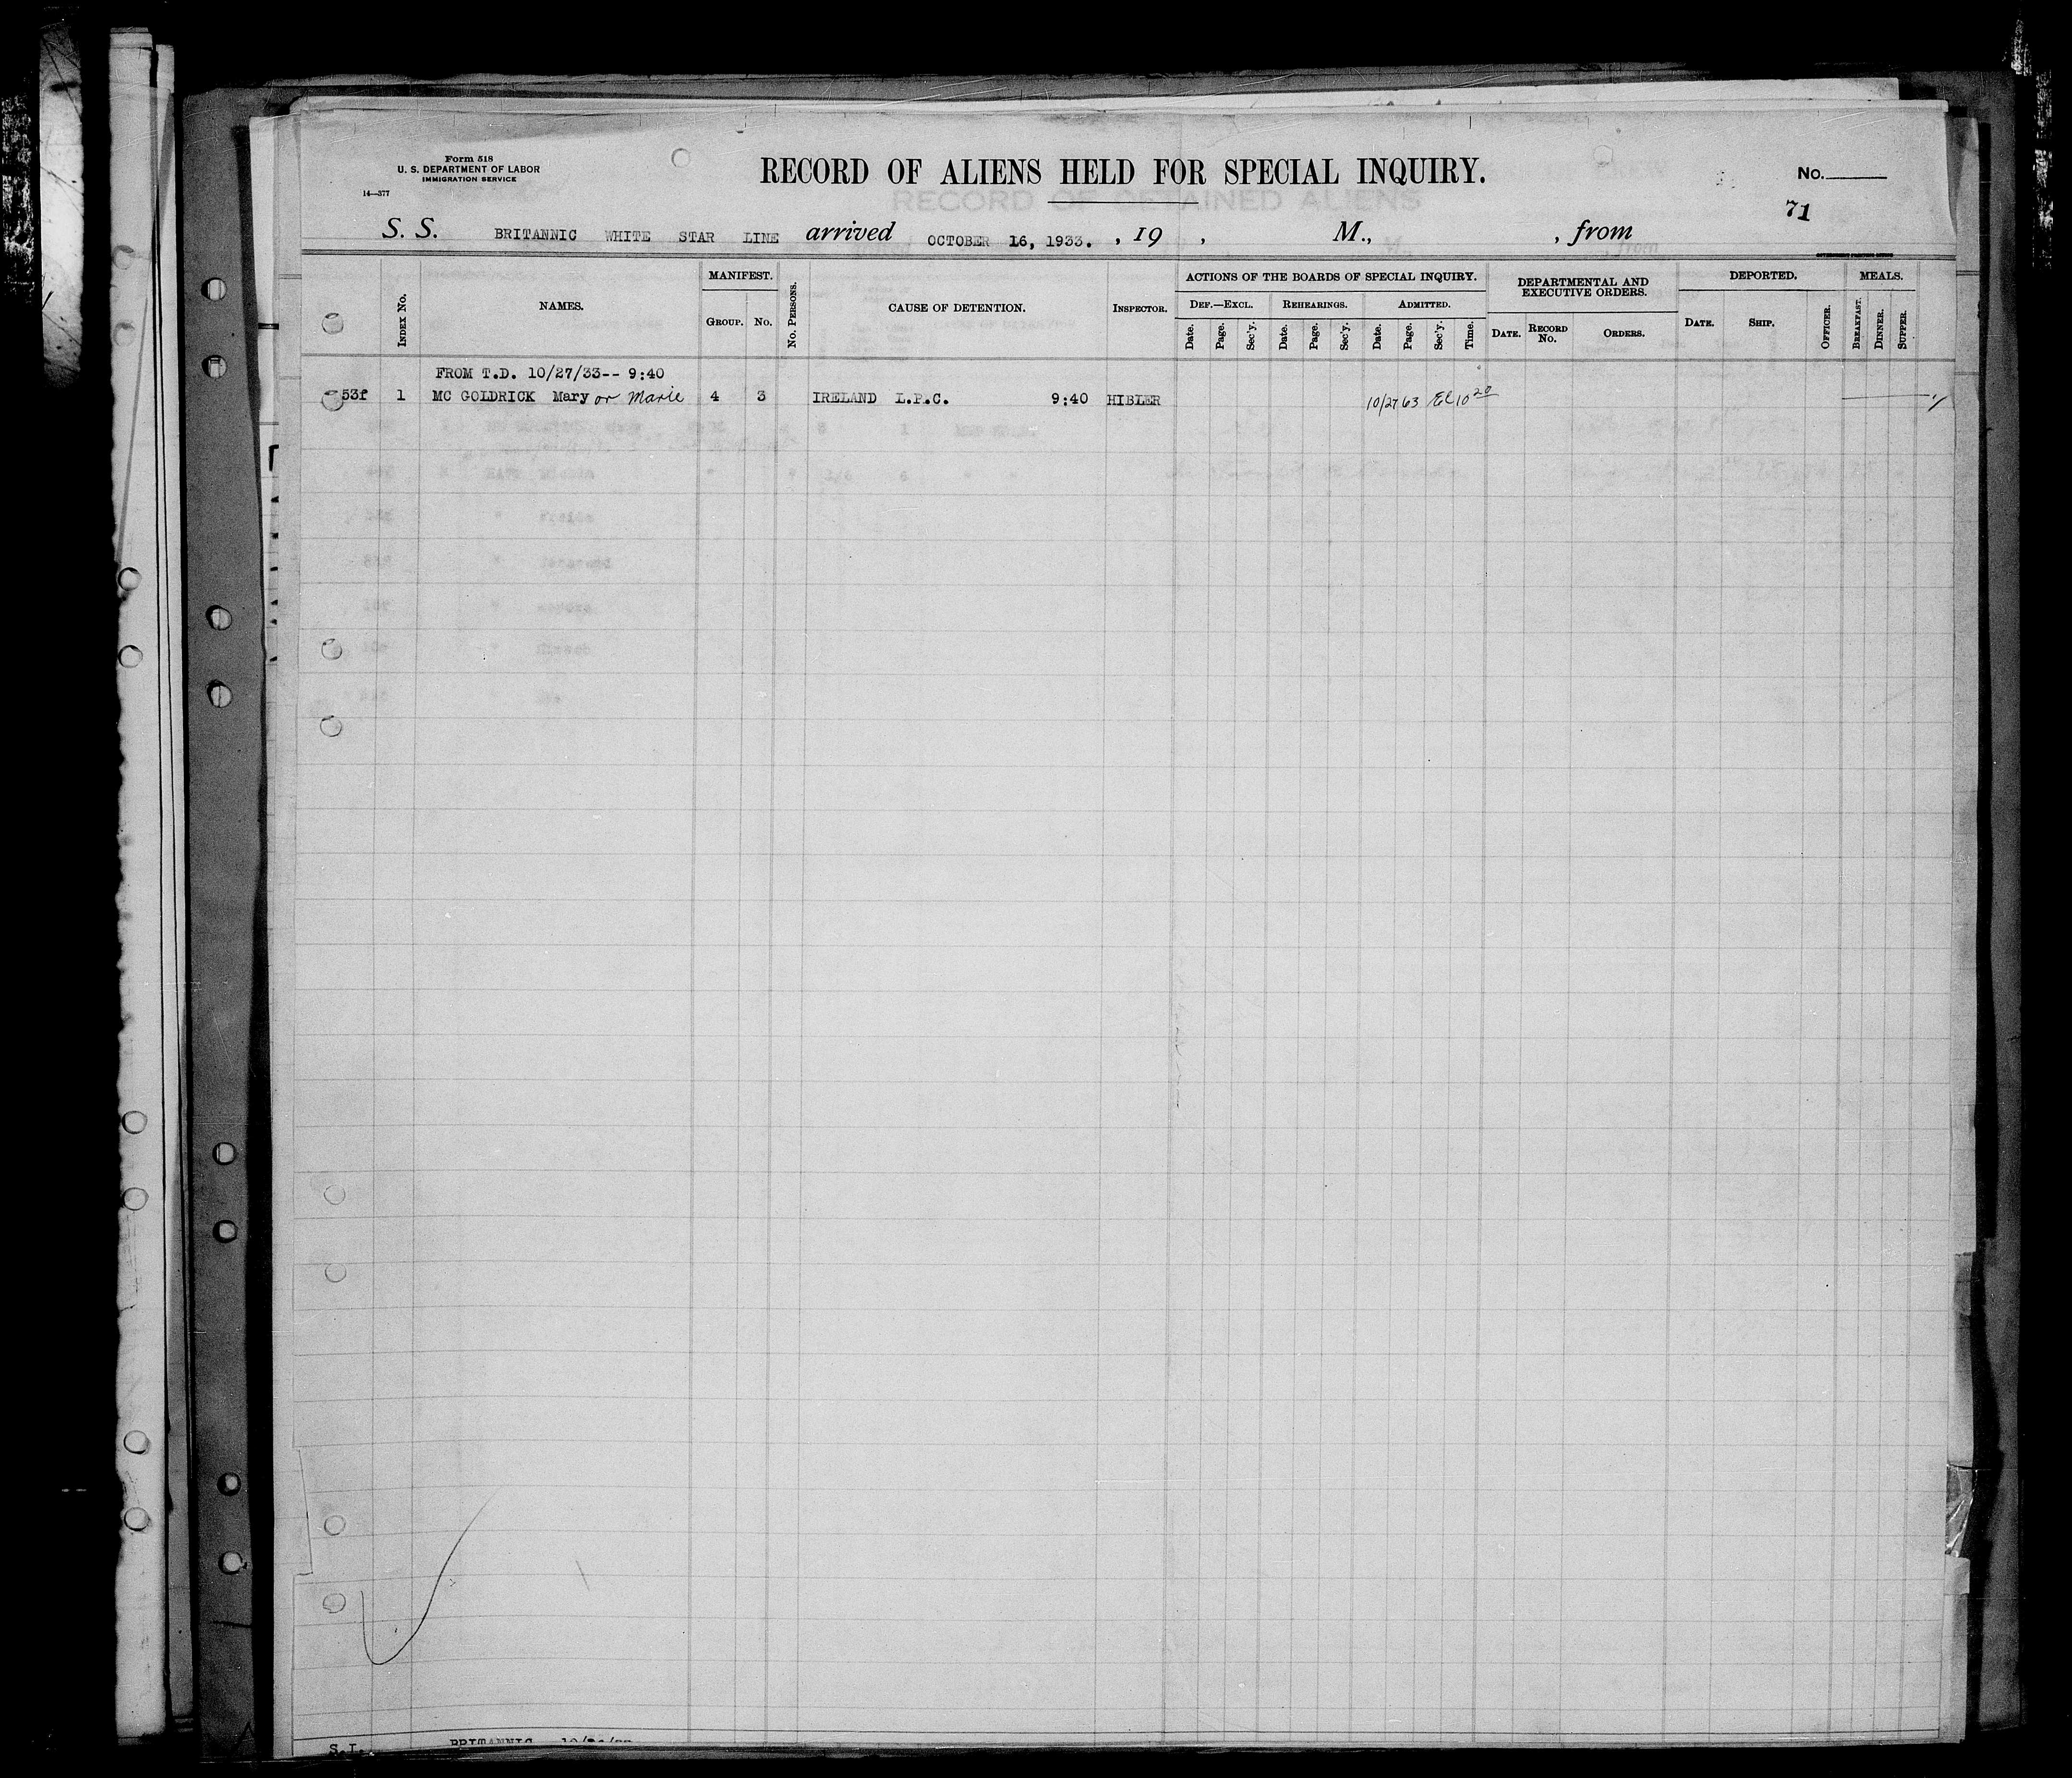 Form 518
U. S. DEPARTMENT OF LABOR
IMMIGRATION SERVICE
14—377
RECORD OF ALIENS HELD FOR SPECIAL INQUIRY.
No.
71
S. S. BRITANNIC WHITE STAR LINE arrived OCTOBER 16, 1933. , 19 , M., , from
INDEX No.
NAMES.
MANIFEST.
GROUP. No.
No. PERSONS.
CAUSE OF DETENTION.
INSPECTOR.
ACTIONS OF THE BOARDS OF SPECIAL INQUIRY.
DEF.—EXCL. REHEARINGS. ADMITTED.
Date. Page. Sec'y. Date. Page. Sec'y. Date. Page. Sec'y. Time.
DEPARTMENTAL AND EXECUTIVE ORDERS.
DATE. RECORD No. ORDERS.
DEPORTED.
DATE. SHIP. OFFICER.
MEALS.
BREAKFAST. DINNER. SUPPER.
FROM T.D. 10/27/33-- 9:40
53f 1 MC GOLDRICK Mary or Marie 4 3 IRELAND L.P.C. 9:40 HIBLER 10/27 63 El 10 20
S.I. BRITANNIC